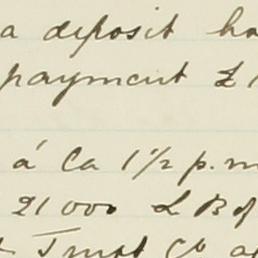 a deposit ha
payment £1
á Ca 1½ p.m
21000 £ B of
t Trust Co a